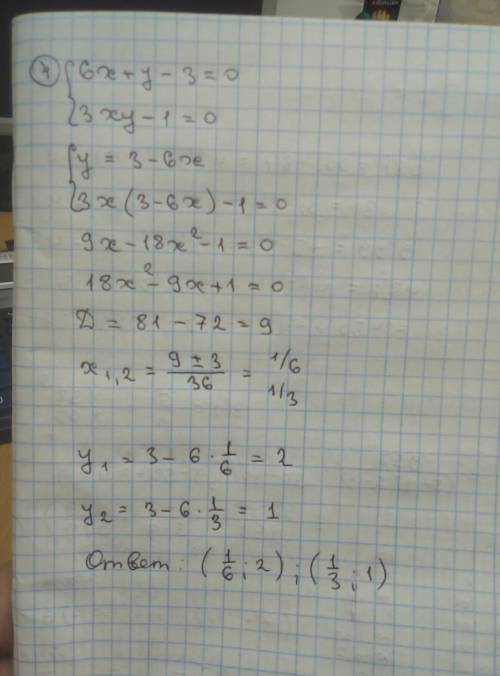 ④ { 6x + y - 3 = 0
3xy - 1 = 0
{ y = 3 - 6x
3x(3 - 6x) - 1 = 0
9x - 18x² - 1 = 0
18x² - 9x + 1 = 0
D = 81 - 72 = 9
x₁,₂ = (9 ± 3)/36 = 1/6
1/3
y₁ = 3 - 6 · 1/6 = 2
y₂ = 3 - 6 · 1/3 = 1
Ответ: (1/6; 2); (1/3; 1)